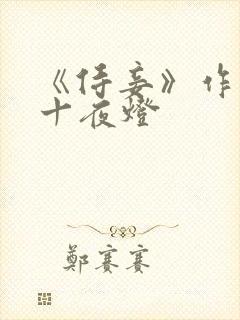 《侍妾》作
十夜燈
鄭賽賽